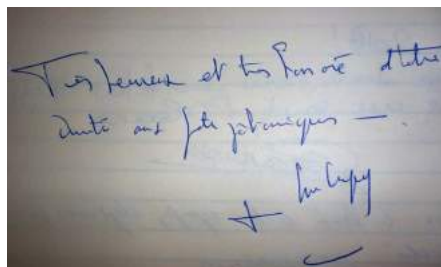 Très heureux et très honoré d'être
invité aux fêtes johanniques —.
+